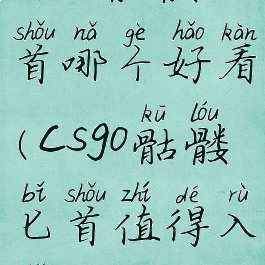 shǒu nǎ gè hǎo kàn
首哪个好看
kū lóu
(csgo骷髅
bǐ shǒu zhí dé rù
匕首值得入